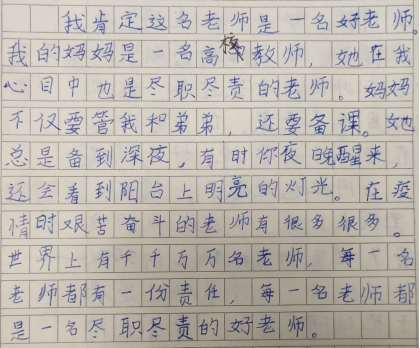 我肯定这名老师是一名好老师。
我的妈妈是一名高校教师，她在我
心目中也是尽职尽责的老师。妈妈
不仅要管我和弟弟，还要备课。她
总是备到深夜，有时你夜晚醒来，
还会看到阳台上明亮的灯光。在疫
情时艰苦奋斗的老师有很多很多。
世界上有千千万万名老师，每一名
老师都有一份责任，每一名老师都
是一名尽职尽责的好老师。